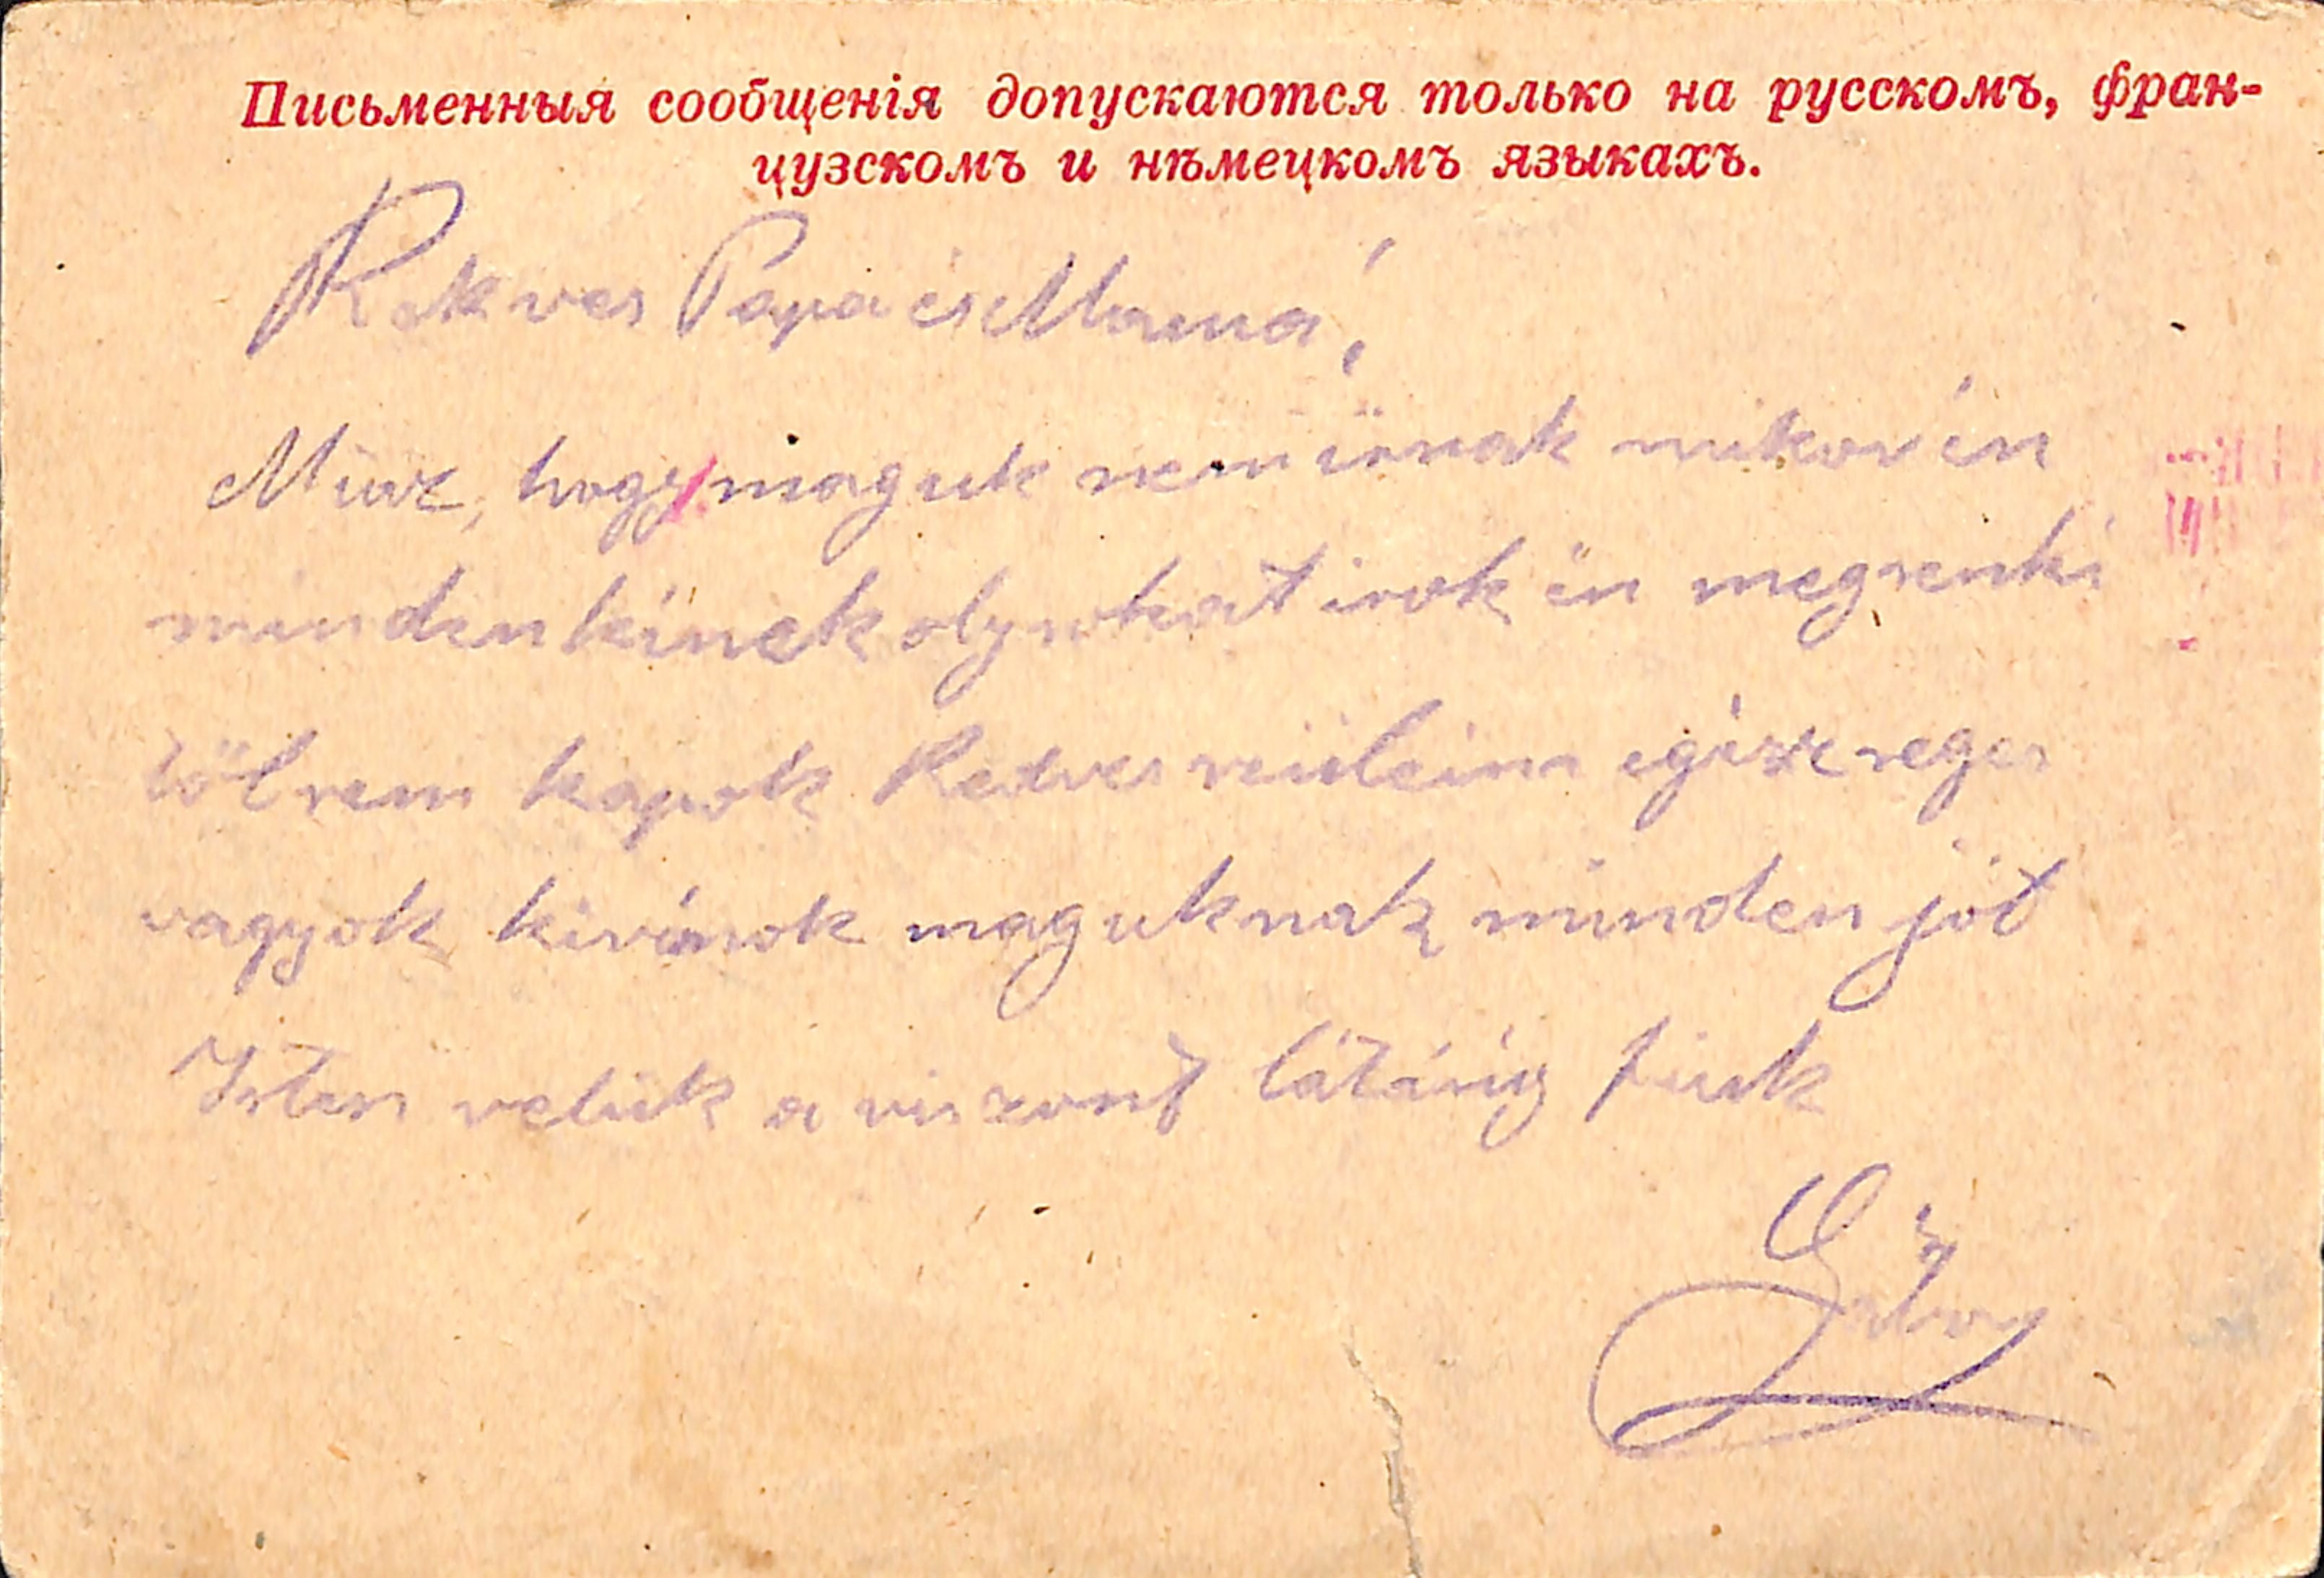 Письменныя сообщенія допускаются только на русскомъ, фран-
цузскомъ и нѣмецкомъ языкахъ.
Kekves Papa és Mama!
Mi az, hogy maguk nem irnak mikor én
mindenkinek oly sokat irok én meg senki
töl sem kapok Kedves szüleim egészséges
vagyok kivánok maguknak minden jót
Isten veluk a viszont látásig fiuk